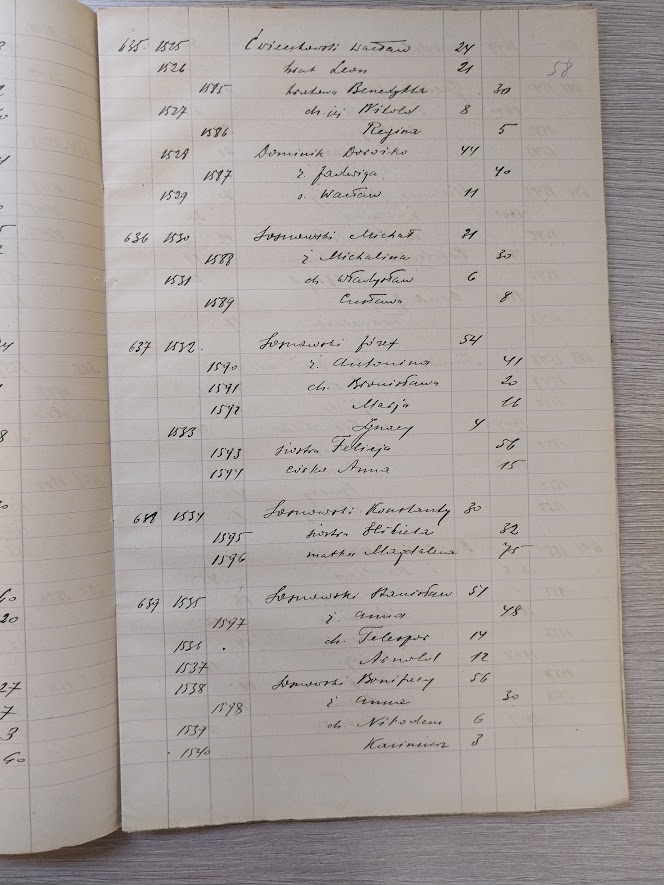 58
635. 1525 Ćwiechowski Wacław 24
1526 brat Leon 21
1585 bratowa Benedykta 30
1527 ch. jej Witold 8
1586 Regina 5
1528 Dominik Dorośko 44
1587 ż. Jadwiga 40
1529 s. Wacław 11
636 1530 Sosnowski Michał 31
1588 ż. Michalina 30
1531 ch. Władysław 6
1589 8
637 1532. Sosnowski Józef 54
1590 ż. Antonina 41
1591 ch. Bronisława 20
1592 Marja 16
1533 Ignacy 4
1593 siostra Felicja 56
1594 córka Anna 15
638 1534 Sosnowski Konstanty 30
1595 siostra Elżbieta 32
1596 matka Magdalena 75
639 1535 Sosnowski Stanisław 51
1597 ż. Anna 48
1536 ch. Telespor 14
1537 Arnold 12
1538 Sosnowski Bonifacy 56
1598 ż. Anna 30
1539 ch. Nikodem 6
1540 Kazimierz 3